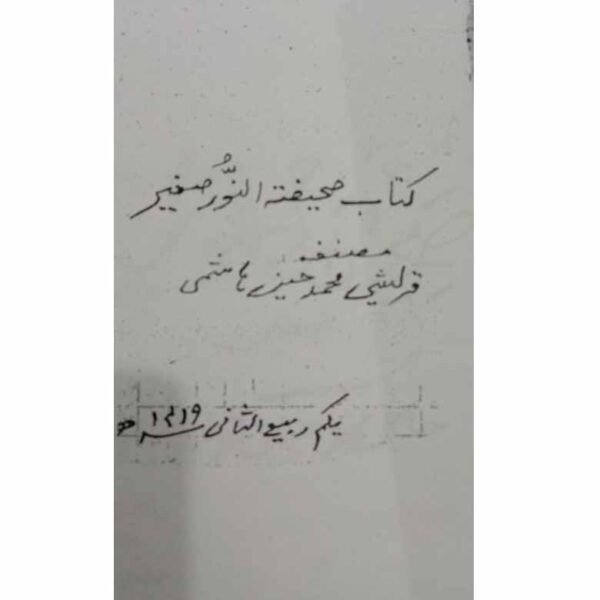 کتاب صحیفتہ النُّور صغیر
مصنفہ
قریشی محمد حسین ہاشمی
یکم ربیع الثانی ۱۴۱۹ ھ